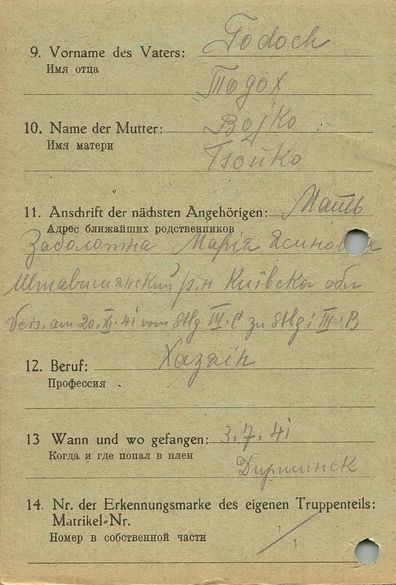 9. Vorname des Vaters: Todoch
Имя отца
Тодох
10. Name der Mutter: Bojko
Имя матери
Бойко
11. Anschrift der nächsten Angehörigen: Мать
Адрес ближайших родственников
Заболотна Марія
р-н Київська обл
Vers. am 20. XI. 41 vom Stlg III. C zu Stlg: III. B
12. Beruf: Хазяїн
Профессия
13 Wann und wo gefangen: 3.7.41
Когда и где попал в плен
14. Nr. der Erkennungsmarke des eigenen Truppenteils:
Matrikel-Nr.
Номер в собственной части